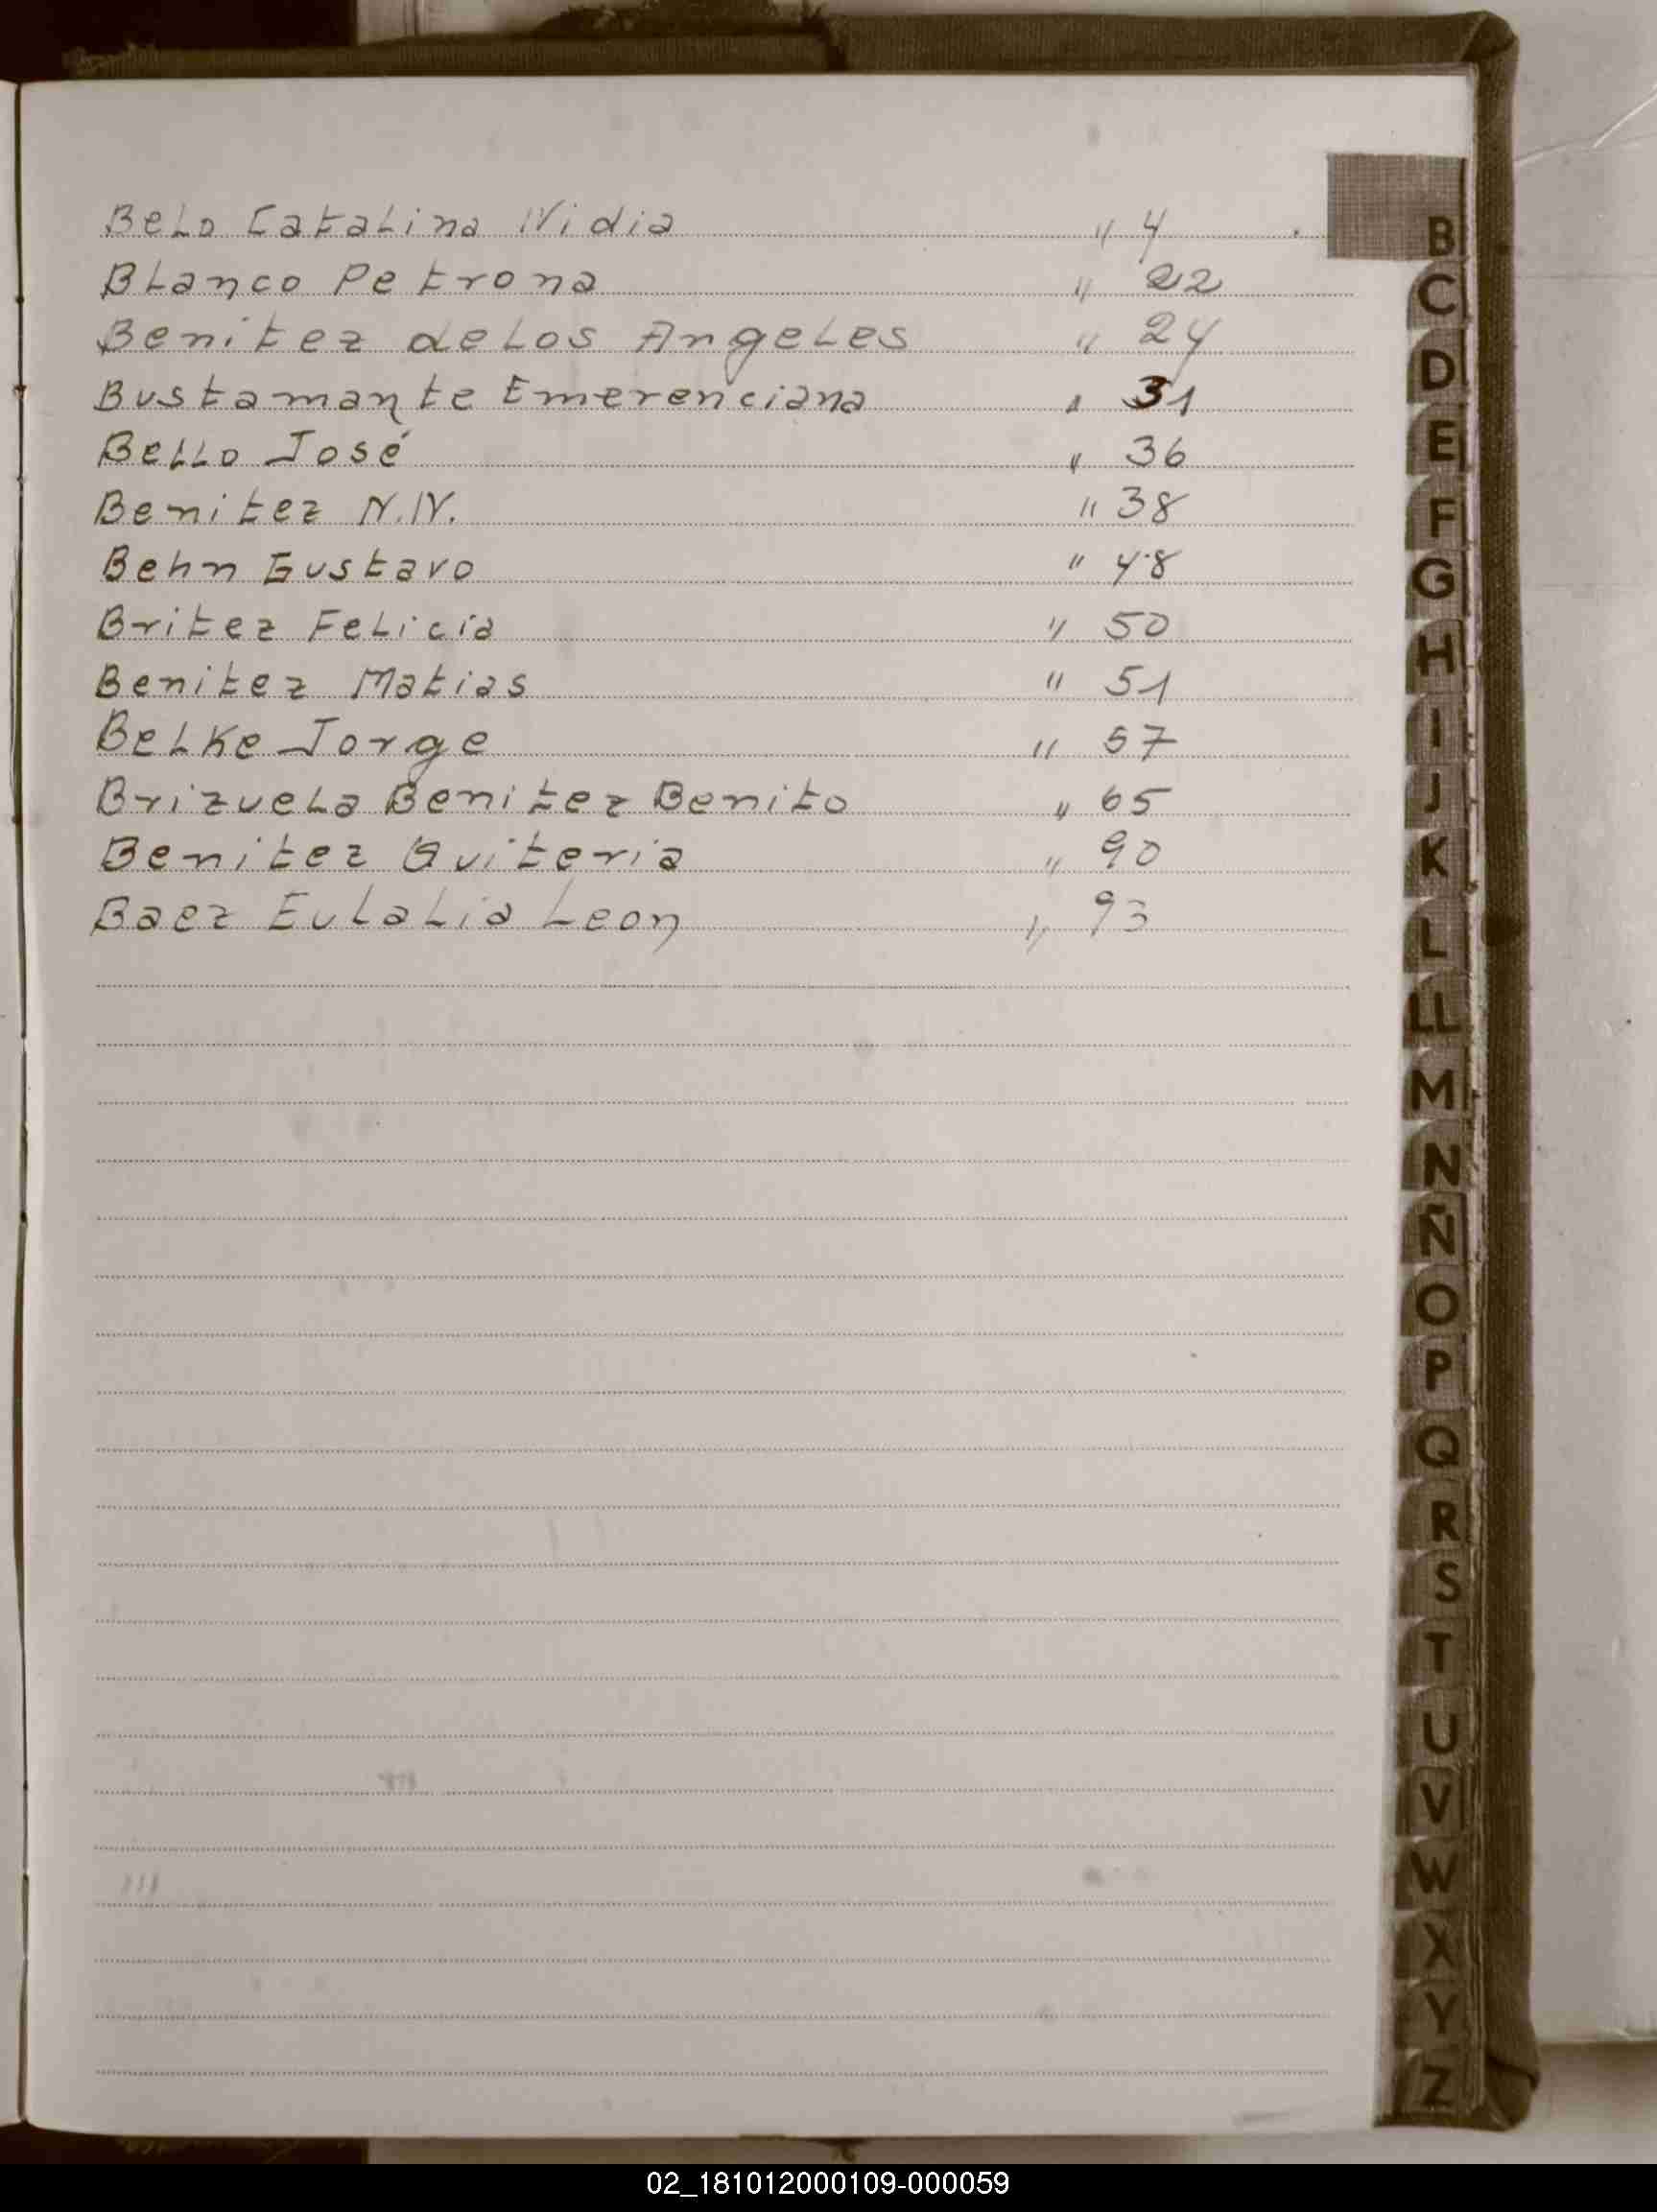 Belo Catalina Nidia " 4
Blanco Petrona " 22
Benitez de Los Angeles " 24
Bustamante Emerenciana " 31
Bello José " 36
Benitez N.N. " 38
Behn Gustavo " 48
Britez Felicia " 50
Benitez Matias " 51
Belke Jorge " 57
Brizuela Benitez Benito " 65
Benitez Quiteria " 90
Baez Eulalia Leon " 93
B
C
D
E
F
G
H
I
J
K
L
LL
M
N
Ñ
O
P
Q
R
S
T
U
V
W
X
Y
Z
02_181012000109-000059